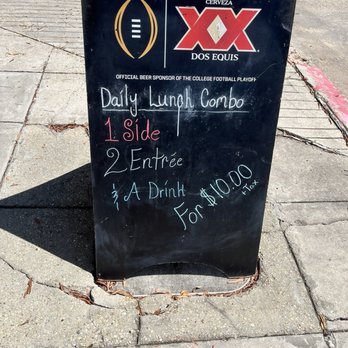 CERVEZA
XX
DOS EQUIS
OFFICIAL BEER SPONSOR OF THE COLLEGE FOOTBALL PLAYOFF
Daily Lunch Combo
1 Side
2 Entrée
& A Drink
For $10.00
+ Tax